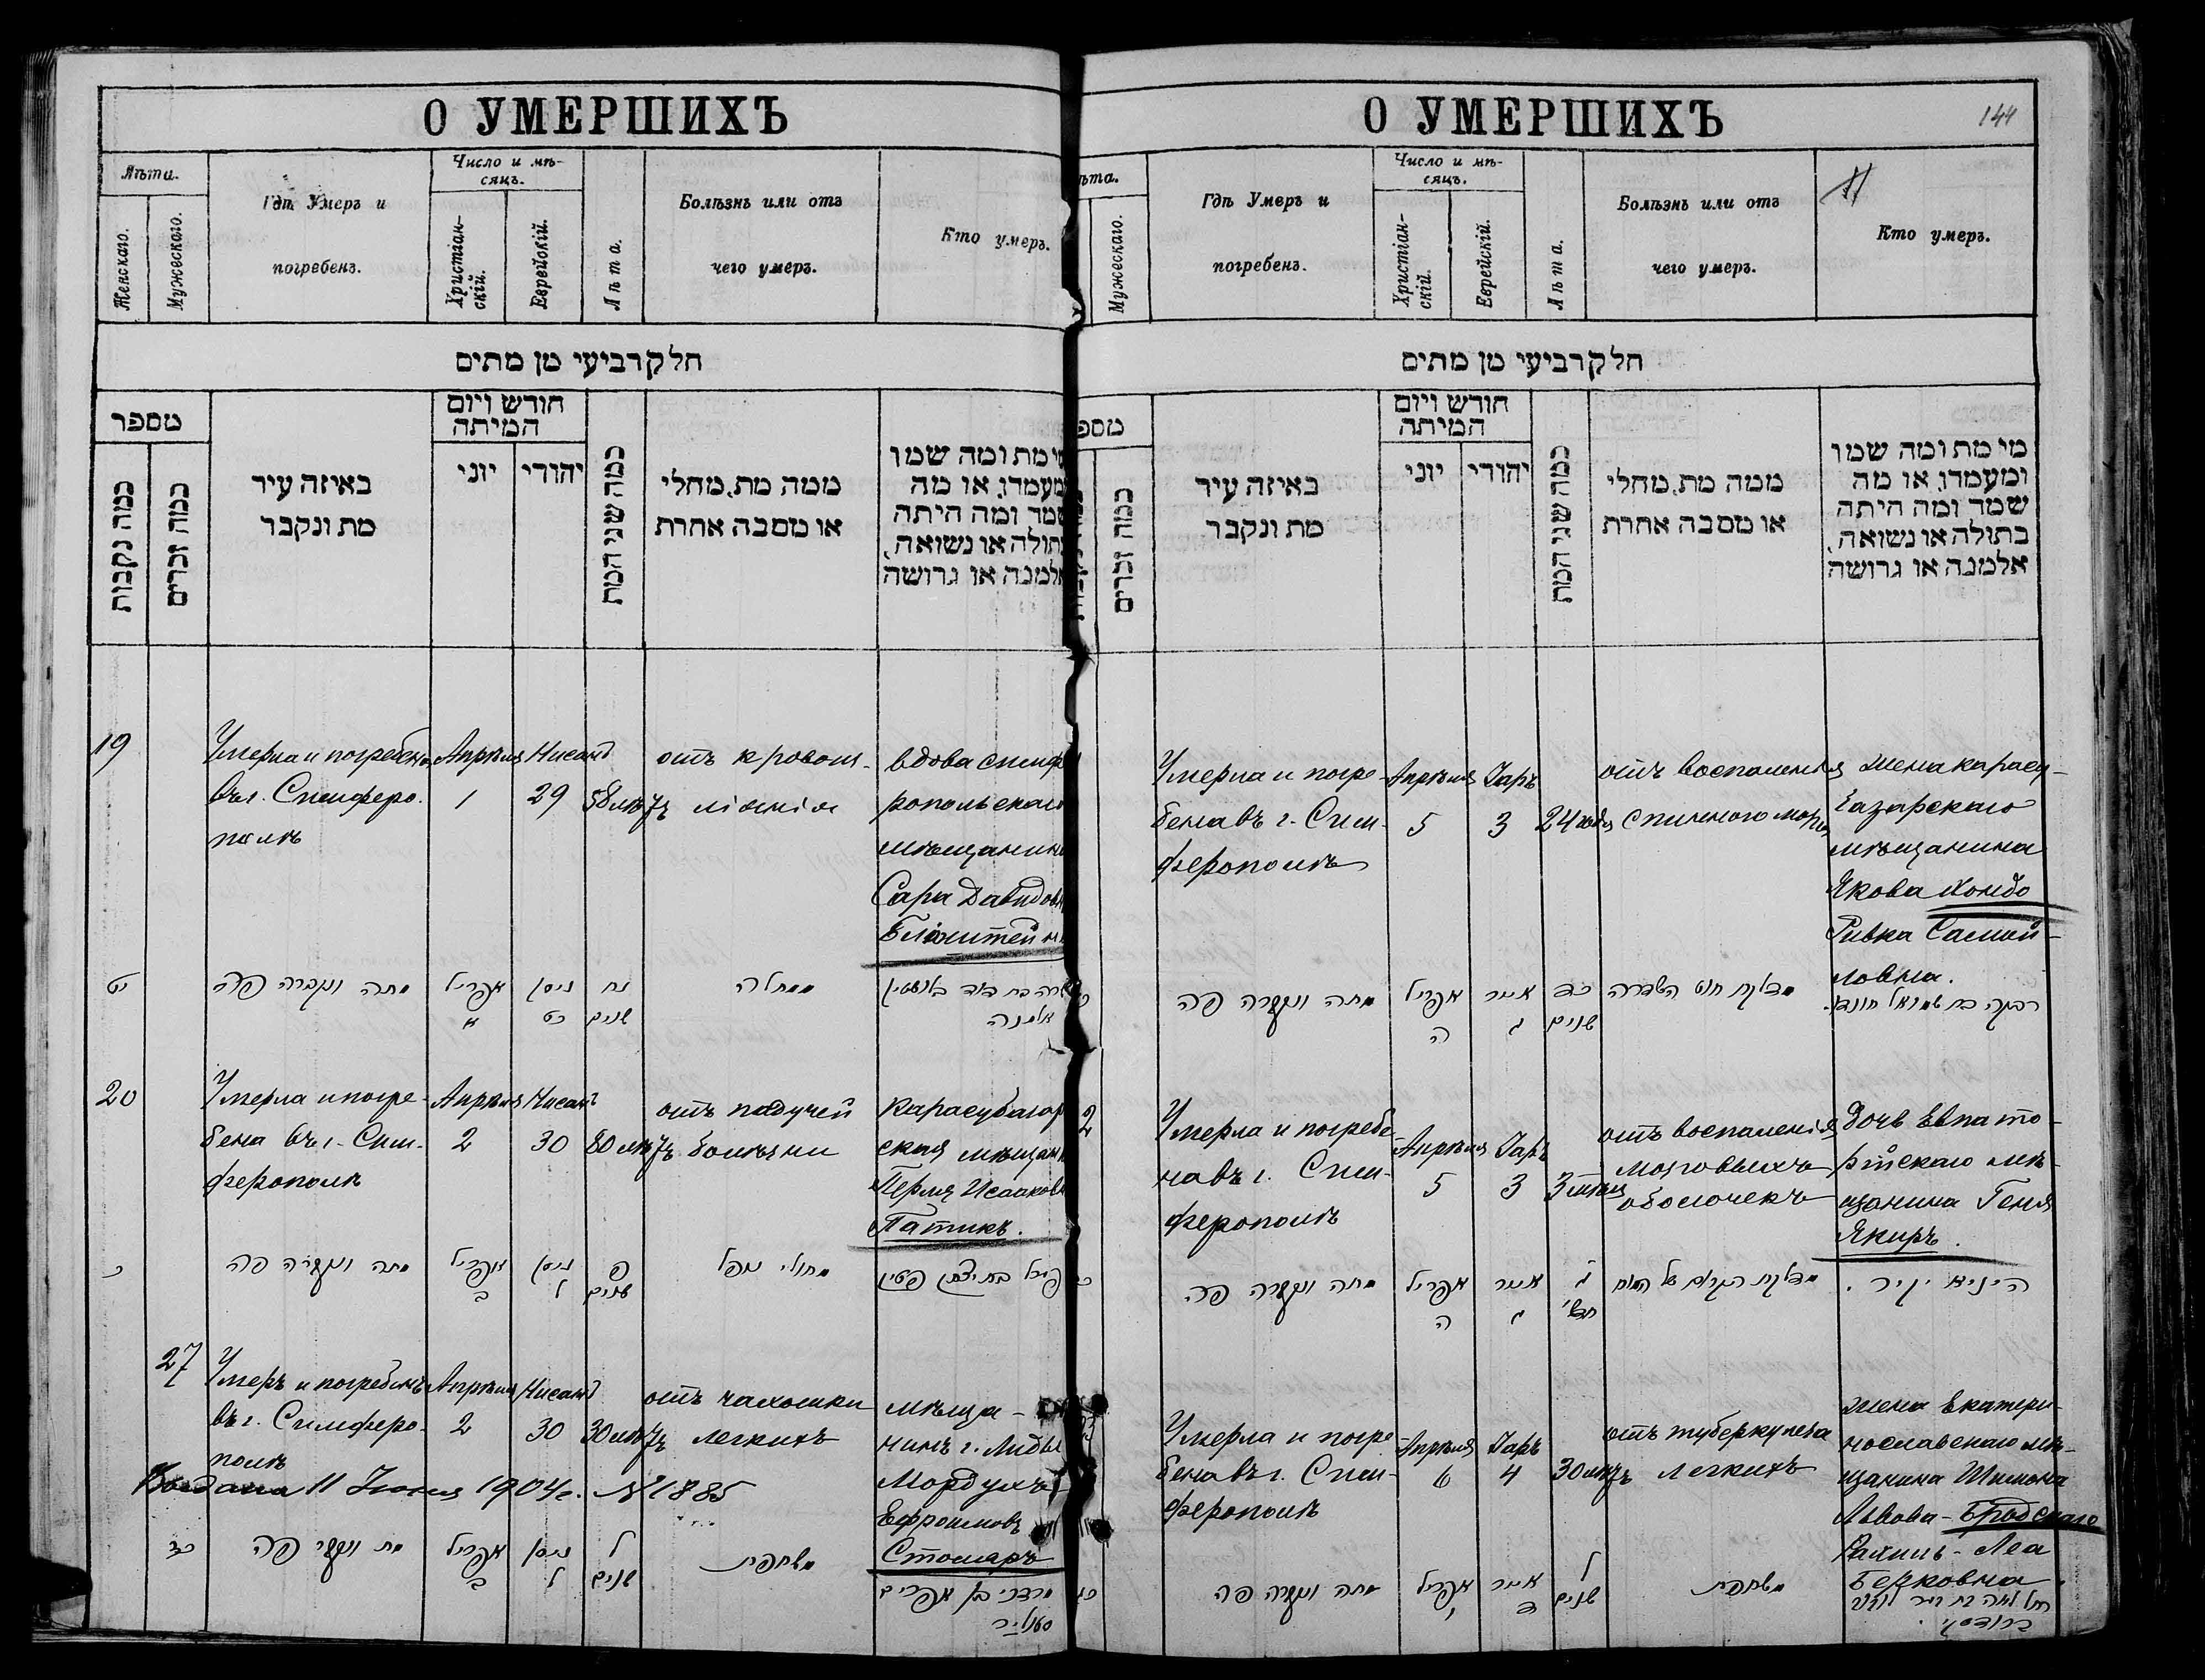 О УМЕРШИХЪ
Лѣта.
Женскаго.
Мужескаго.
Гдѣ Умеръ и
погребенъ.
Число и мѣ-
сяцъ.
Христіан-
скій.
Еврейскій.
Лѣта.
Болѣзнь или отъ
чего умеръ.
Кто умеръ.
חלק רביעי מן מתים
מספר
כמה נקבות
כמה זכרים
באיזה עיר
מת ונקבר
חודש ויום
המיתה
יוני
יהודי
כמה שני המת
ממה מת, מחלי
או מסבה אחרת
מי מת ומה שמו
ומעמדו, או מה
שמה ומה היתה
בתולה או נשואה,
אלמנה או גרושה
19
Умерла и погребена
въ г. Симферо-
полѣ
Апрѣля
1
Нисанъ
29
58 лѣтъ
отъ кровоиз-
ліянія
вдова симфе
ропольскаго
мѣщанина
Сара Давидовн
Блюмштейнъ
יט
מתה ונקברה פה
אפריל
א
ניסן
כט
נח
שנים
ממחלה
שרה בת דוד
אלמנה
20
Умерла и погре-
бена въ г. Сим-
ферополѣ
Апрѣля
2
Нисанъ
30
80 лѣтъ
отъ падучей
болѣзни
Карасубазар
ская мѣщанк
Перля Исааковн
Патикъ.
כ
מתה ונקברה פה
אפריל
ב
ניסן
ל
פ
שנים
מחולי נופל
27
Умеръ и погребенъ
въ г. Симферо-
полѣ
Апрѣля
2
Нисанъ
30
30 лѣтъ
отъ чахотки
легкихъ
мѣща-
нинъ г. Лиды
Мордухъ
Ефроимовъ
Столяръ
Выдана 11 Іюня 1904 г. № 1885
כז
מת ונקבר פה
אפריל
ב
ניסן
ל
ל
שנים
משחפת
מרדכי בן אפרים
סטוליר
О УМЕРШИХЪ
144
ѣта.
Мужескаго.
Гдѣ Умеръ и
погребенъ.
Число и мѣ-
сяцъ.
Христіан-
скій.
Еврейскій.
Лѣта.
Болѣзнь или отъ
чего умеръ.
Кто умеръ.
חלק רביעי מן מתים
מספ
כמה זכרים
באיזה עיר
מת ונקבר
חודש ויום
המיתה
יוני
יהודי
כמה שני המת
ממה מת, מחלי
או מסבה אחרת
מי מת ומה שמו
ומעמדו, או מה
שמה ומה היתה
בתולה או נשואה,
אלמנה או גרושה
Умерла и погре-
бена въ г. Сим-
ферополѣ
Апрѣля
5
Іаръ
3
24 года
отъ воспаленія
спинного мозга
жена карасу-
базарскаго
мѣщанина
Якова Хондо
Ривка Самой-
ловна.
מתה ונקברה פה
אפריל
ה
אייר
ג
כד
שנים
מדלקת חוט השדרה
רבקה בת שמואל חונדו.
2
Умерла и погребе-
на въ г. Сим-
ферополѣ
Апрѣля
5
Іаръ
3
3 мѣсяца
отъ воспаленія
мозговыхъ
оболочекъ
Дочь Евпато-
рійскаго мѣ-
щанина Геня
Якиръ.
מתה ונקברה פה
אפריל
ה
אייר
ג
ג
חדשי
מדלקת הקרום של המוח
היניא יקיר.
Умерла и погре-
бена въ г. Сим-
ферополѣ
Апрѣля
6
Іаръ
4
30 лѣтъ
отъ туберкулеза
легкихъ
жена Екатери-
нославскаго мѣ-
щанина Шимона
Львова-Бродскаго
Рахиль-Леа
Берковна.
מתה ונקברה פה
אפריל
ו
אייר
ד
ל
שנים
משחפת
רחל לאה בת
ברודסקי.